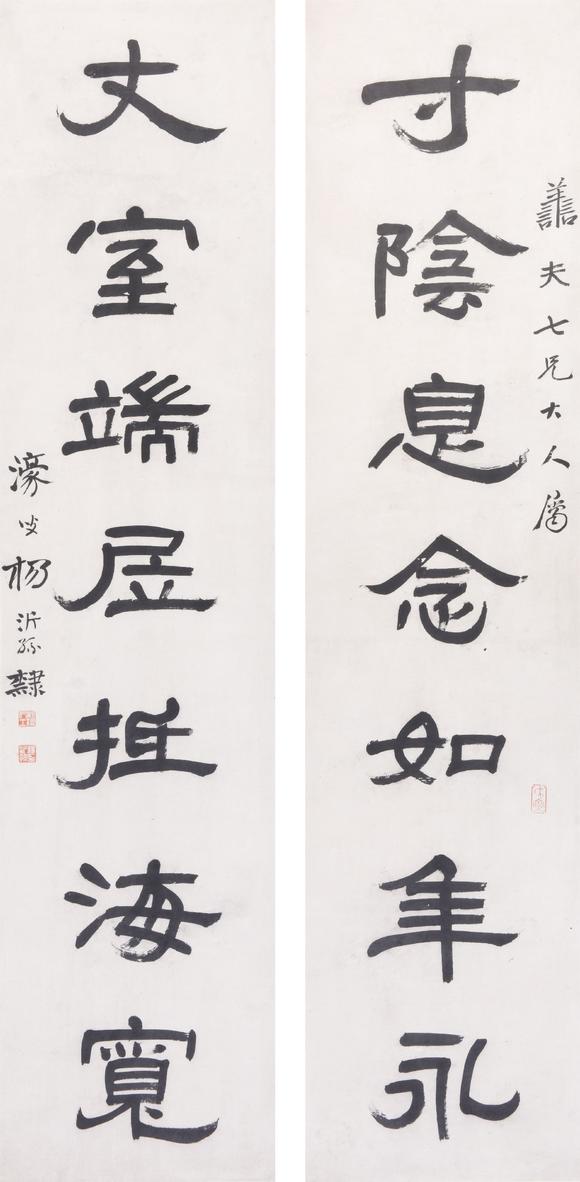 譱夫七兄大人屬
寸陰息念如年永
丈室端居抵海寬
濠叟楊沂孫隸